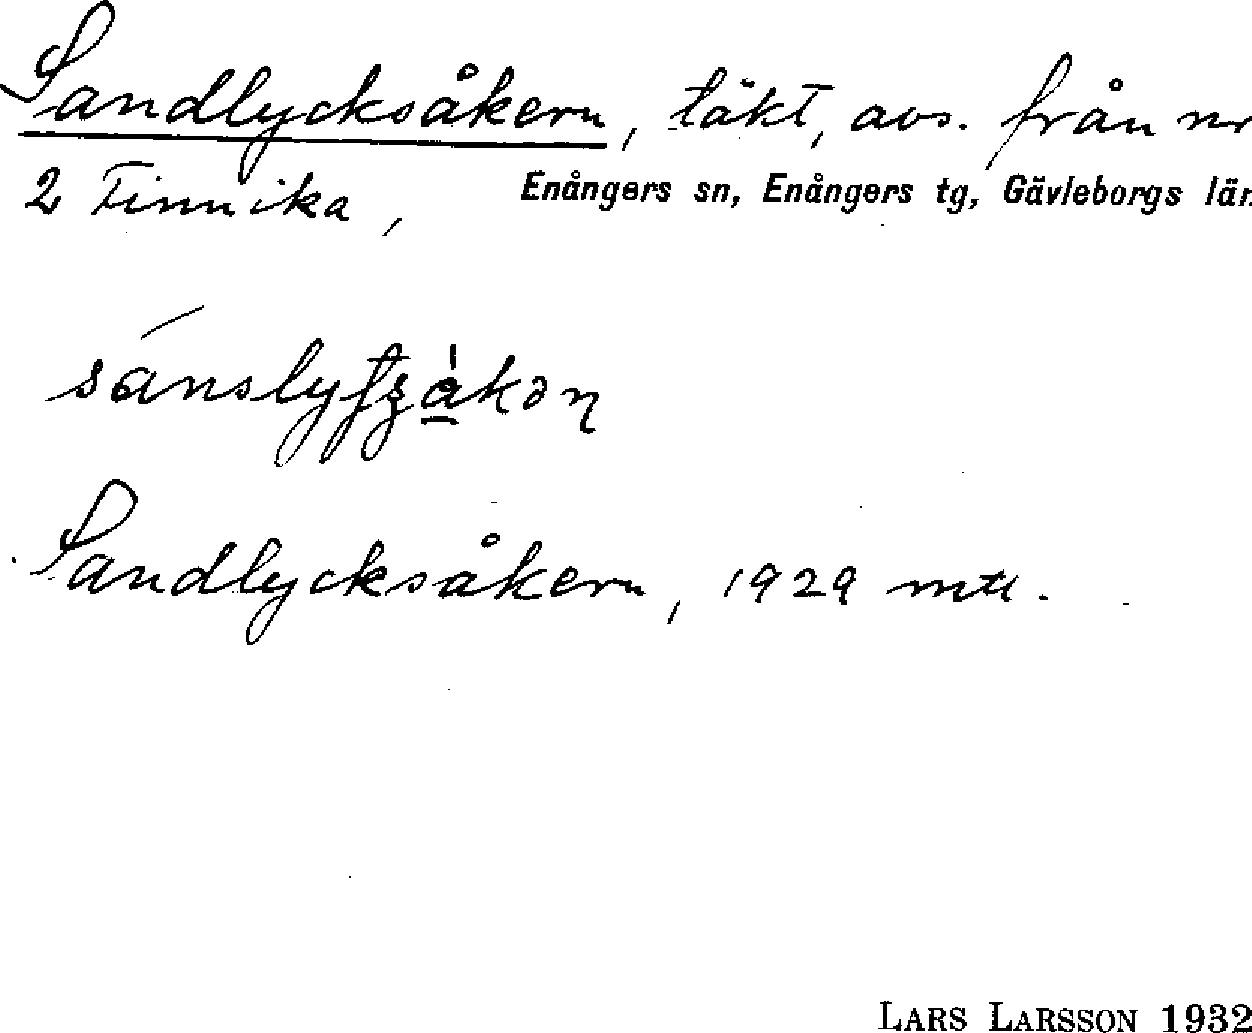 Sandlycksåkern, täkt, avs. från nr
2 Finnika, Enångers sn, Enångers tg, Gävleborgs län
Sandlycksåkern, 1929 mtl.
LARS LARSSON 1932